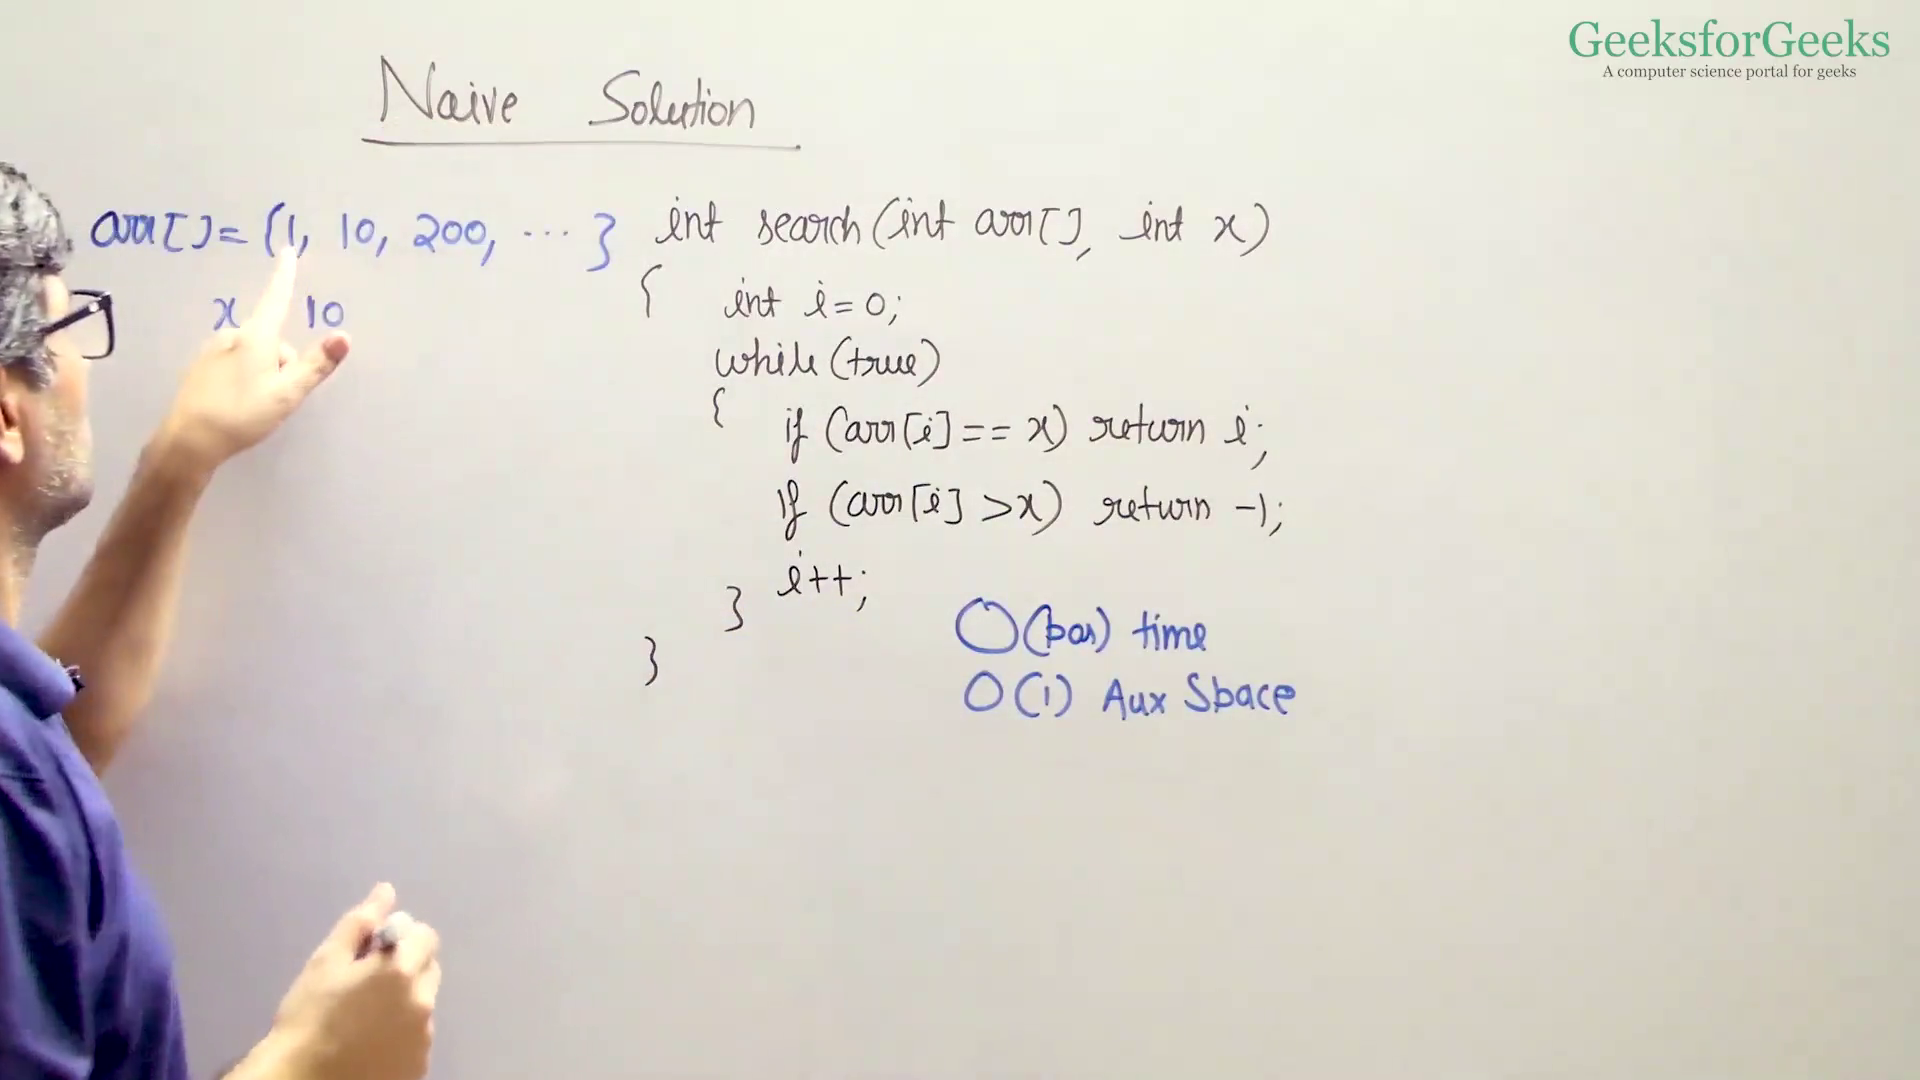 GeeksforGeeks
A computer science portal for geeks
Naive Solution
arr[] = {1, 10, 200, ... }
x 10
int search(int arr[], int x)
{ int i=0;
while(true)
{ if (arr[i] == x) return i;
if (arr[i] > x) return -1;
i++;
}
}
O(pos) time
O(1) Aux Space